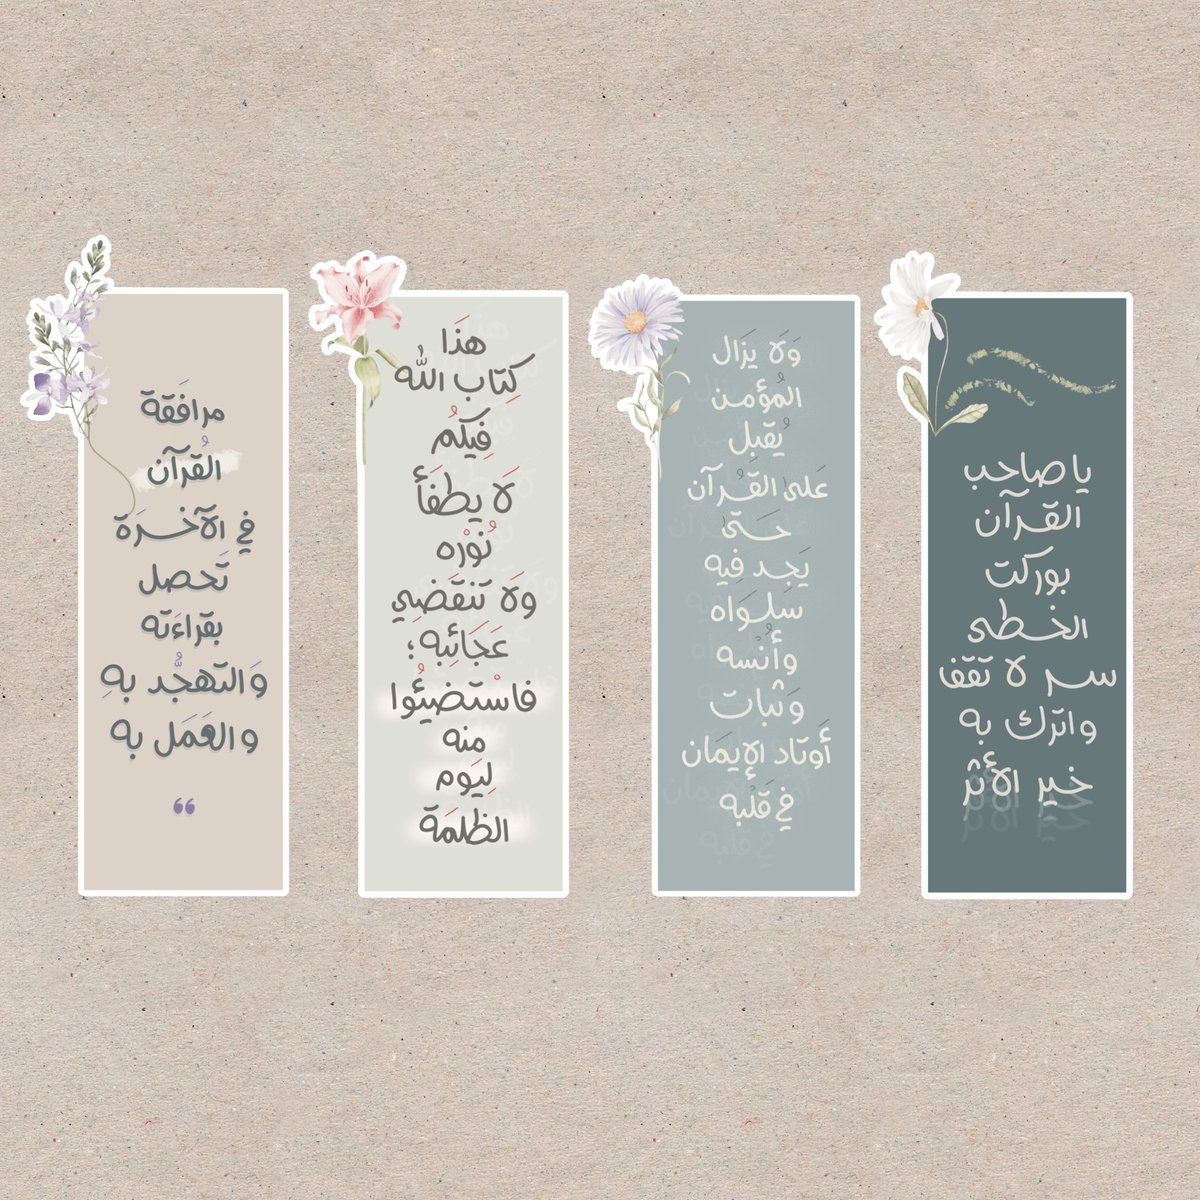 يا صاحب
القرآن
بوركت
الخطى
سر لا تقف
واترك به
خير الأثر
وَلا يزَال
المُؤمن
يُقبل
عَلى القُرآن
حَتى
يَجد فيه
سَلوَاه
وأُنْسه
وَثبات
أوتَاد الإيمَان
في قلْبه
هذَا
كِتَاب الله
فِيكُم
لَا يطفَأ
نُوْره
وَلَا تَنقَضِي
عَجَائِبه؛
فاسْتضيئُوا
منه
ليَوم
الظلمَة
مرافَقة
القُرآن
في الآخرَة
تَحصل
بقراءَته
وَالتهجُّد بهِ
والعَمَل به
❝